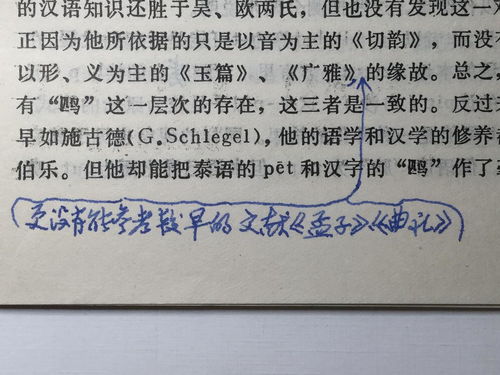 的汉语知识还胜于吴、欧两氏，但也没有发现这一
正因为他所依据的只是以音为主的《切韵》，而没
以形、义为主的《玉篇》、《广雅》的缘故。总之
有“鸣”这一层次的存在，这三者是一致的。反过
早如施古德(G.Schlegel)，他的语学和汉学的修养
伯乐。但他却能把泰语的 pēt 和汉字的“鸣”作了
更没有能参考较早的文献《孟子》《曲礼》